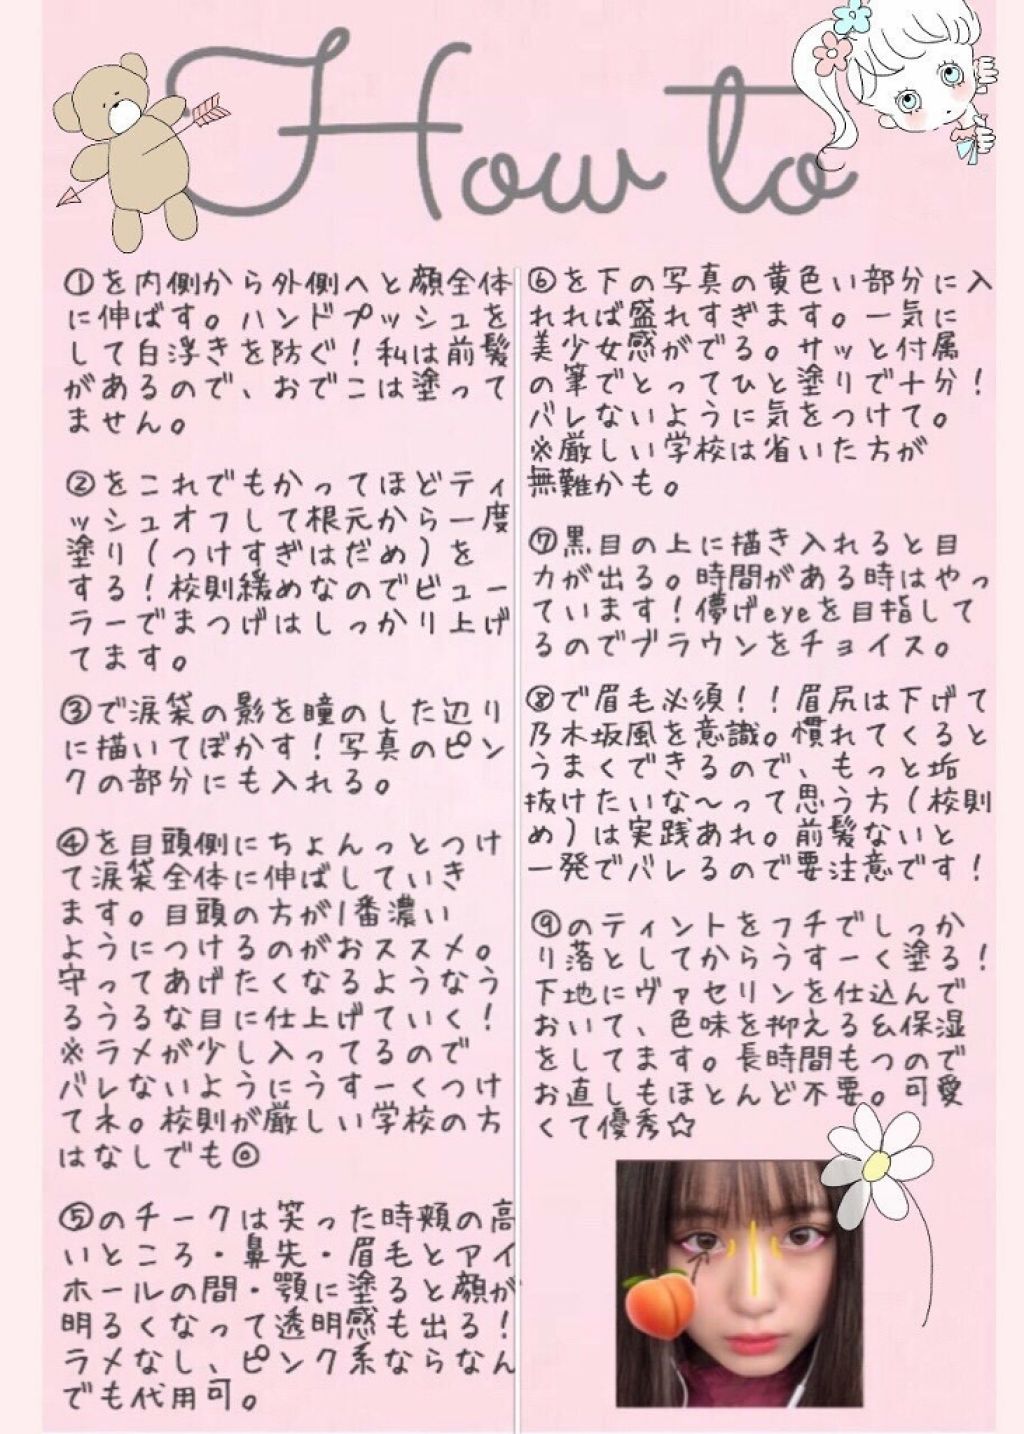 How to
①を内側から外側へと顔全体
に伸ばす。ハンドプッシュを
して白浮きを防ぐ！私は前髪
があるので、おでこは塗って
ません。
②をこれでもかってほどティ
ッシュオフして根元から一度
塗り（つけすぎはだめ）を
する！校則緩めなのでビュー
ラーでまつげはしっかり上げ
てます。
③で涙袋の影を瞳のした辺り
に描いてぼかす！写真のピン
クの部分にも入れる。
④を目頭側にちょんっとつけ
て涙袋全体に伸ばしていき
ます。目頭の方が1番濃い
ようにつけるのがおススメ。
守ってあげたくなるようなう
るうるな目に仕上げていく！
※ラメが少し入ってるので
バレないようにうすーくつけ
てネ。校則が厳しい学校の方
はなしでも◎
⑤のチークは笑った時頬の高
いところ・鼻先・眉毛とアイ
ホールの間・顎に塗ると顔が
明るくなって透明感も出る！
ラメなし、ピンク系ならなん
でも代用可。
⑥を下の写真の黄色い部分に入
れれば盛れすぎます。一気に
美少女感がでる。サッと付属
の筆でとってひと塗りで十分！
バレないように気をつけて。
※厳しい学校は省いた方が
無難かも。
⑦黒目の上に描き入れると目
力が出る。時間がある時はやっ
ています！儚げeyeを目指して
るのでブラウンをチョイス。
⑧で眉毛必須！！眉尻は下げて
乃木坂風を意識。慣れてくると
うまくできるので、もっと垢
抜けたいな〜って思う方（校則
め）は実践あれ。前髪ないと
一発でバレるので要注意です！
⑨のティントをフチでしっか
り落としてからうすーく塗る！
下地にヴァセリンを仕込んで
おいて、色味を抑える&保湿
をしてます。長時間もつので
お直しもほとんど不要。可愛
くて優秀☆